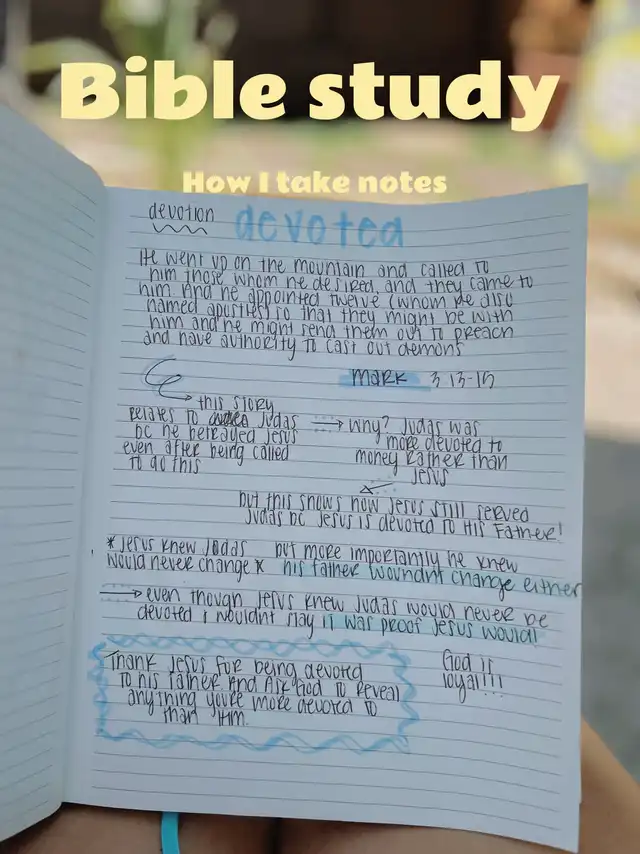 Bible study
How I take notes
devotion devoted
He went up on the mountain and called to
him those whom he desired, and they came to
him And he appointed twelve (whom he also
named apostles) so that they might be with
him and he might send them out to preach
and have authority to cast out demons
mark 3 13-15
this story
relates to Judas
bc he betrayed Jesus
even after being called
to do this
why? Judas was
more devoted to
money rather than
Jesus
but this shows how Jesus still served
Judas bc Jesus is devoted to His Father!
*Jesus knew Judas but more importantly he knew
would never change* his father wouldnt change either
even though Jesus knew Judas would never be
devoted & wouldnt stay it was proof Jesus would!
Thank Jesus for being devoted
to his father And Ask God to reveal
anything you're more devoted to
than Him.
God is
loyal!!!